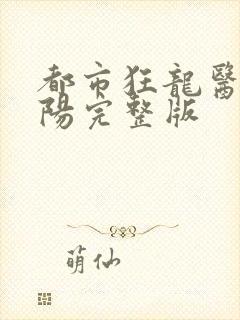 都市狂龍醫
陽完整版
萌仙